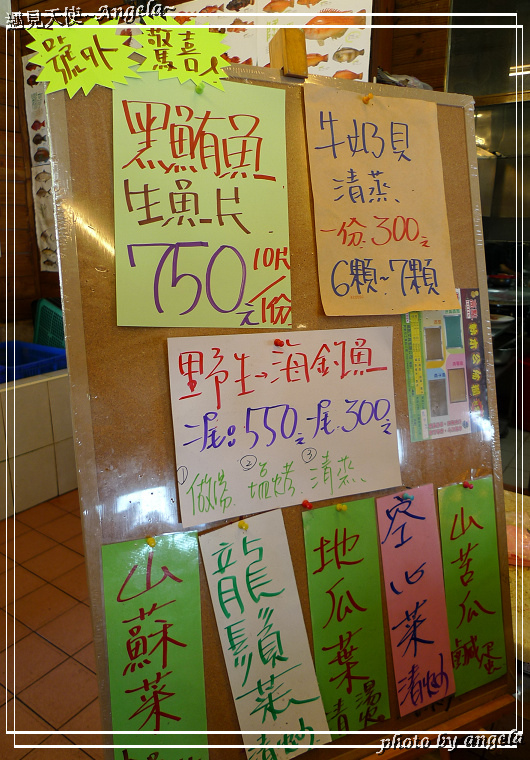 遇見天使~Angela~
號外
驚喜
黑鮪魚
生魚片
750元
10片/1份
牛奶貝
清蒸
一份.300元
6顆~7顆
野生海釣魚
二尾:550元一尾.300元
①做湯.②塩烤.③清蒸
山蘇菜
龍鬚菜
清炒
地瓜葉
清燙
空心菜
清炒
山苦瓜
鹹蛋
photo by angela